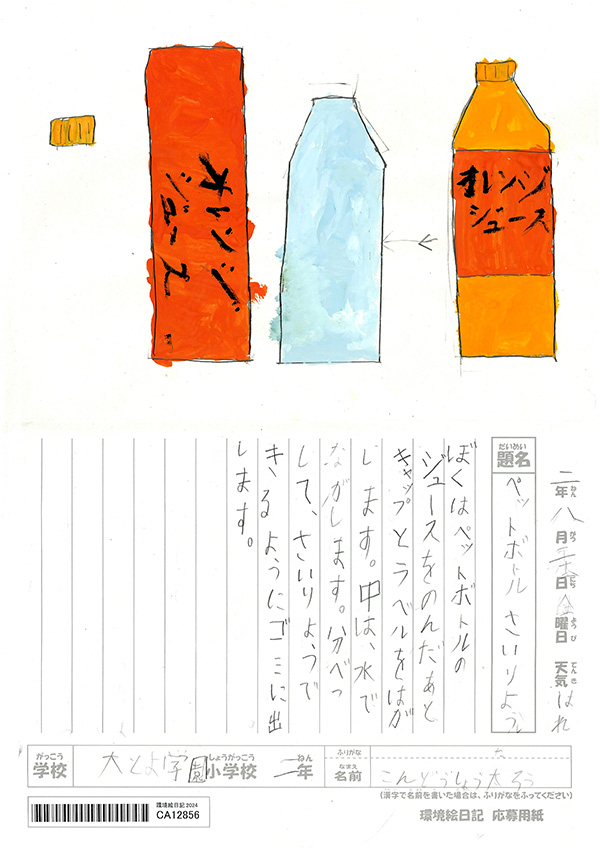 オレンジ
ジュース
オレンジ
ジュース
二年八月 日金曜日 天気はれ
ねん がつ にち ようび てんき
だいめい
題名
ペットボトルさいりよう
ぼくはペットボトルの
ジュースをのんだあと
キャップとラベルをはが
します。中は、水で
ながします。分べつ
して、さいりようで
きるようにゴミに出
します。
がっこう
学校
大とよ学園
しょうがっこう
小学校
二
ねん
年
ふりがな
なまえ
名前
こんどうしょう太ろう
た
(漢字で名前を書いた場合は、ふりがなをふってください)
環境絵日記 2024
CA12856
環境絵日記 応募用紙